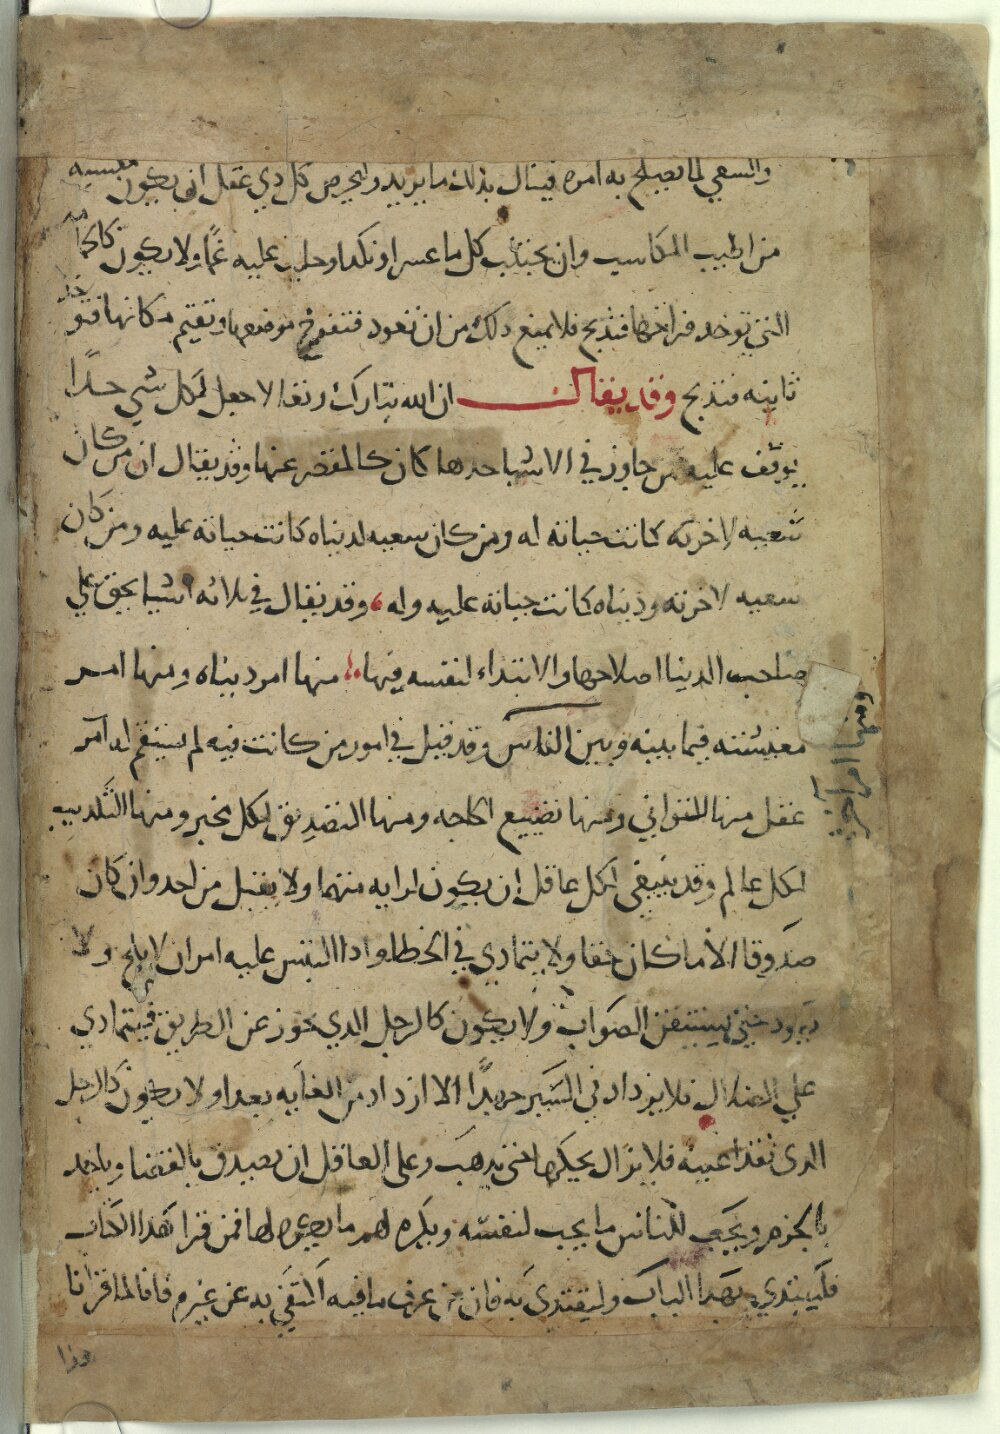 والسعي لما يصلح به امره فينال بذلك ما يريد والحرص كل دي عقل ان يكون معيشته
من اطيب المكاسب وان يجتنب كل ما عسر او نكد او جلب عليه غمًا ولا يكون كالحمامه
التي توخد فراخها فتدبح فلا يمنع دلك من ان تعود فتفرخ موضعها وتقيم مكانها فتوخد
ثانيه فتدبح وقد يقال ان الله تبارك وتعالا جعل لكل شي حدًا
يوقف عليه من جاوز في الاشيا حدها كان كالمقصر عنها وقد يقال ان من كان
سعيه لاخرته كانت حياته له ومن كان سعيه لدنياه كانت حياته عليه ومن كان
سعيه لاخرته ودنياه كانت حياته عليه وله وقد يقال في ثلاثه اشيا يحق على
صاحب الدنيا اصلاحها والابتداء لنفسه فيها منها امر دنياه ومنها امر
معيشته فيما بينه وبين الناس وقد قيل في امور من كانت فيه لم يستقم له امر
عقل منها التواني ومنها تضييع الحاجه ومنها التصديق لكل مخبر ومنها التكديب
لكل عالم وقد ينبغي لكل عاقل ان يكون لرايه متهما ولا يقبل من احد وان كان
صدوقا الا ما كان حقا ولا يتمادي في الخطا وادا التبس عليه امر ان لا يلج ولا
حتى يستيقن الصواب ولا يكون كالرجل الدي يجوز عن الطريق فيتمادي
علي الضلال فلا يزداد في السير جهدًا الا ازداد من الغايه بعدا ولا يكون كالرجل
الدي تقدا عينه فلا يزال يحكها حتى تدهب وعلى العاقل ان يصدق بالقضا وياخد
بالحزم ويحب للناس ما يحب لنفسه ويكره لهم ما يكره لها فمن قرا هدا الكتاب
فليبتدي بهدا الباب وليقتدي به فان من عرف ما فيه اكتفي به عن غيره فانا لما قرانا
ومنها امر اخر